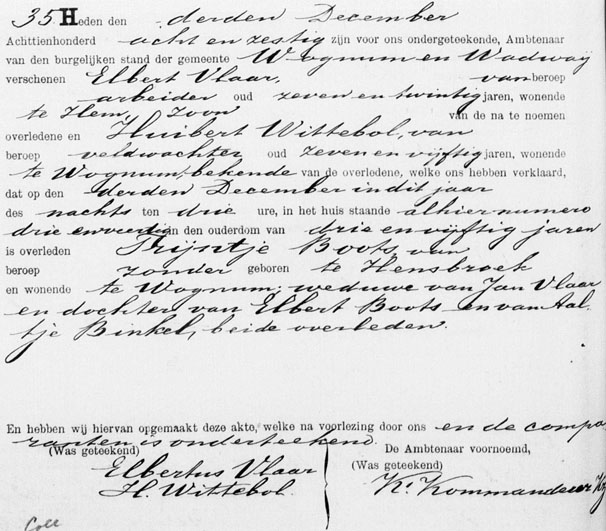 35 Heden den derden December
Achttienhonderd acht en zestig zijn voor ons ondergeteekende, Ambtenaar
van den burgelijken stand der gemeente Wognum en Wadway
verschenen Elbert Vlaar, van beroep
arbeider oud zeven en twintig jaren, wonende
te Hem, Zoon van de na te noemen
overledene en Huibert Wittebol, van
beroep veldwachter oud zeven en vijftig jaren, wonende
te Wognum, bekende van de overledene, welke ons hebben verklaard,
dat op den derden December in dit jaar
des nachts ten drie ure, in het huis staande alhier numero
drie en veertig in den ouderdom van drie en vijftig jaren
is overleden Trijntje Boots van
beroep zonder geboren te Hensbroek
en wonende te Wognum; weduwe van Jan Vlaar
en dochter van Elbert Boots en van Aal-
tje Binkel, beide overleden.
En hebben wij hiervan opgemaakt deze akte, welke na voorlezing door ons en de compa-
ranten is onderteekend.
(Was geteekend)
Elbertus Vlaar
H. Wittebol.
De Ambtenaar voornoemd,
(Was geteekend)
Kt. Kommandeur
Coll